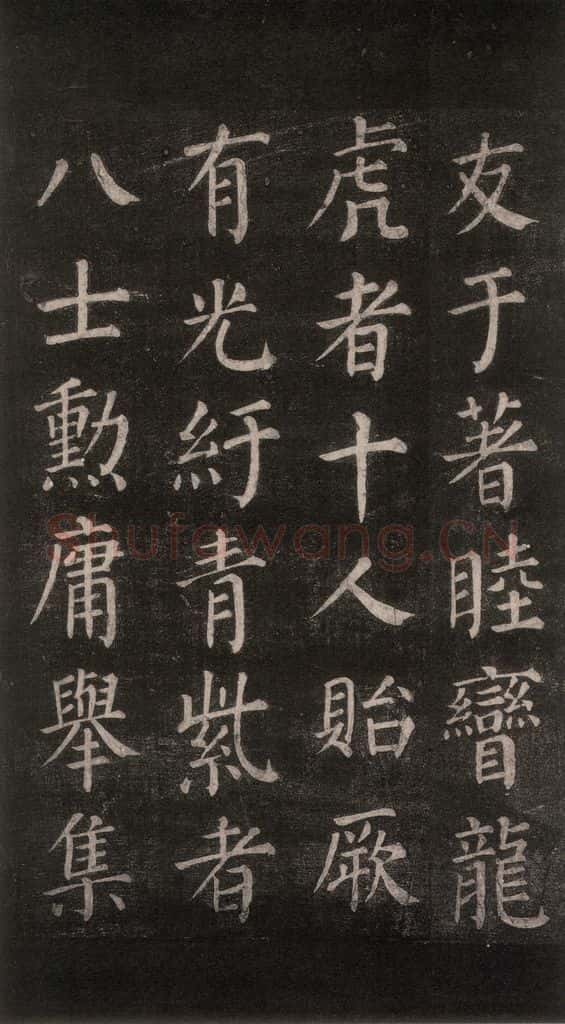 友于著睦矕龍
虎者十人貽厥
有光紆青紫者
八士勳庸舉集
Shufawang.CN